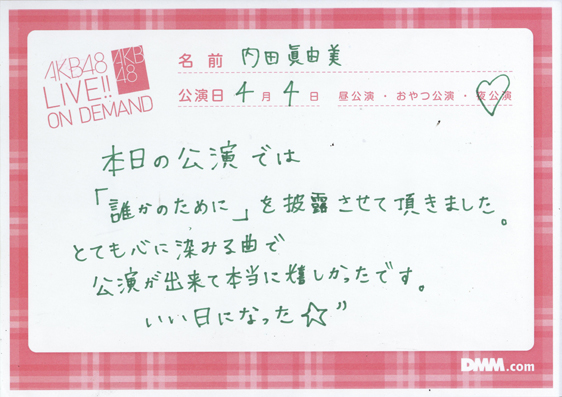 AKB48
LIVE!!
ON DEMAND
AKB
48
名前 内田眞由美
公演日 4月4日 昼公演・おやつ公演・夜公演
本日の公演では
「誰かのために」を披露させて頂きました。
とても心に染みる曲で
公演が出来て本当に嬉しかったです。
いい日になった☆”
DMM.com